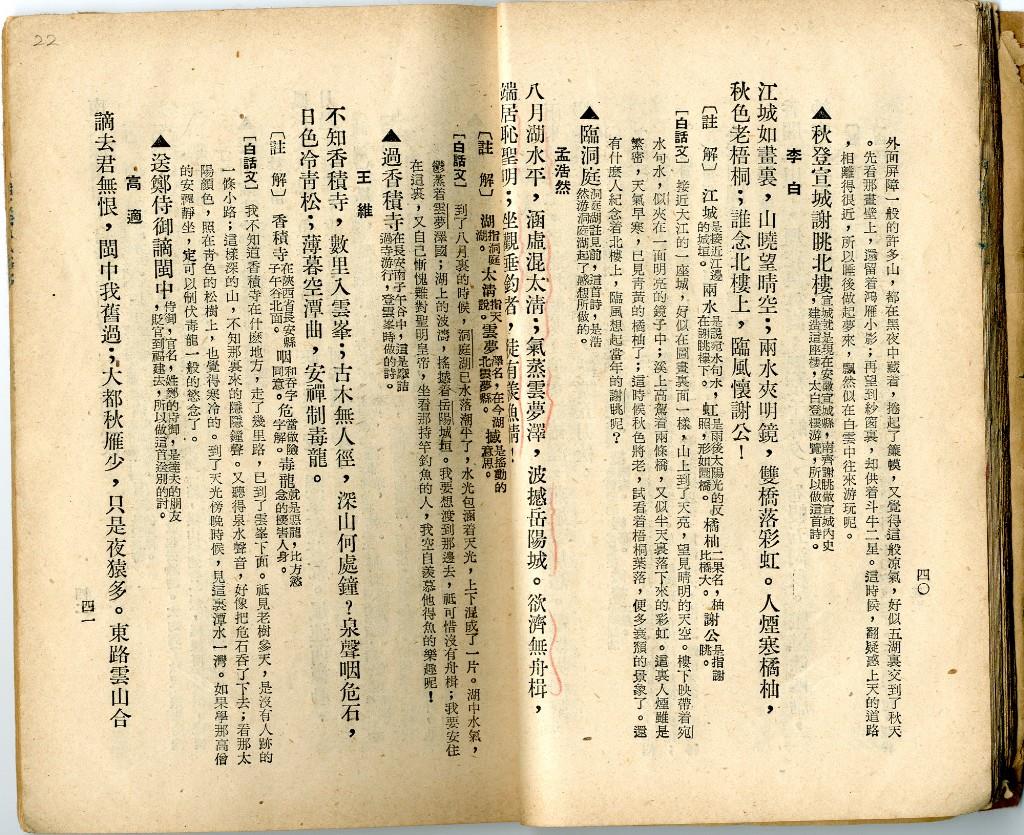 外面屏障一般的許多山，都在黑夜中藏着，捲起了簾幙，又覺得這般涼氣，好似五湖裏交到了秋天
。先看那畫壁上，還留着鴻雁小影；再望到紗窗裏，却供着斗牛二星。這時侯，翻疑惑上天的道路
，相離得很近，所以睡後做起夢來，飄然似在白雲中往來游玩呢。
▲秋登宣城謝眺北樓宣城就是現在安徽宣城縣，南齊謝眺做宣城內史，建造這座樓，太白登樓游覽，所以做這首詩。
李白
江城如畫裏，山曉望晴空；兩水夾明鏡，雙橋落彩虹。人煙寒橘柚，
秋色老梧桐；誰念北樓上，臨風懷謝公！
〔註解〕江城是接近江邊的城垣。兩水是說宛水句水，在謝眺樓下。虹是雨後太陽光的反照，形如圓橋。橘柚二果名，柚比橘大。謝公是指謝眺。
〔白話文〕接近大江的一座城，好似在圖畫裏面一樣，山上到了天亮，望見晴明的天空。樓下映帶着宛
水句水，似夾在一面明亮的鏡子中；溪上高駕着兩條橋，又似半天裏落下來的彩虹。這裏人煙雖是
繁密，天氣早寒，已見青黃的橘柚了；這時侯秋色將老，試看着梧桐葉落，便多衰頹的景象了。還
有什麼人紀念着北樓上，臨風想起當年的謝眺呢？
▲臨洞庭洞庭湖註見前，這首詩，是浩然游洞庭湖起了感想所做的。
孟浩然
八月湖水平，涵虛混太清；氣蒸雲夢澤，波撼岳陽城。欲濟無舟楫，
端居恥聖明；坐觀垂釣者，徒有羨魚情！
〔註解〕湖指洞庭湖。太清指天說。雲夢澤名，在今湖北雲夢縣。撼是搖動的意思。
〔白話文〕到了八月裏的時候，洞庭湖已水落潮平了，水光包涵着天光，上下混成了一片。湖中水氣，
鬱蒸着雲夢澤國；湖上的波濤，搖撼着岳陽城垣。我要想渡到那邊去，祗可惜沒有舟楫；我要安住
在這裏，又自己慚愧難對聖明皇帝，坐看那持竿釣魚的人，我空自羨慕他得魚的樂趣呢！
▲過香積寺在長安南子午谷中，這是摩詰過寺游行，登雲峯時做的詩。
王維
不知香積寺，數里入雲峯；古木無人徑，深山何處鐘？泉聲咽危石，
日色冷青松；薄暮空潭曲，安禪制毒龍。
〔註解〕香積寺在陝西省長安縣子午谷北面。咽和吞字同意。危當做險字解。毒龍就是惡龍，比方慾念的擾害人身。
〔白話文〕我不知道香積寺在什麼地方，走了幾里路，已到了雲峯下面。祗見老樹參天，是沒有人跡的
一條小路；這樣深的山，不知那裏來的隱隱鐘聲。又聽得泉水聲音，好像把危石吞了下去；看那太
陽顏色，照在青色的松樹上，也覺得寒冷的。到了天光傍晚時候，見這裏潭水一灣。如果學那高僧
的安禪靜坐，定可以制伏毒龍一般的慾念了。
▲送鄭侍御謫閩中侍御，官名，姓鄭的侍御，是達夫的朋友，貶官到福建去，所以做這首送別的詩。
高適
謫去君無恨，閩中我舊過；大都秋雁少，只是夜猿多。東路雲山合
四〇
四一
22